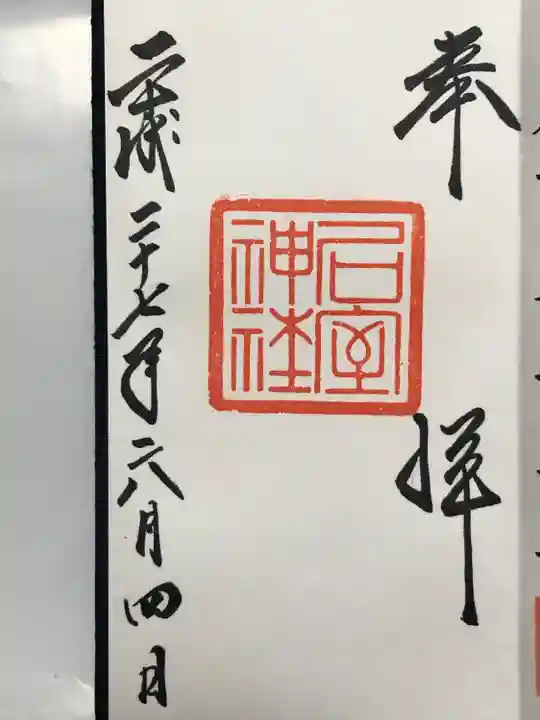 奉拝
石室
神社
平成二十七年六月四日